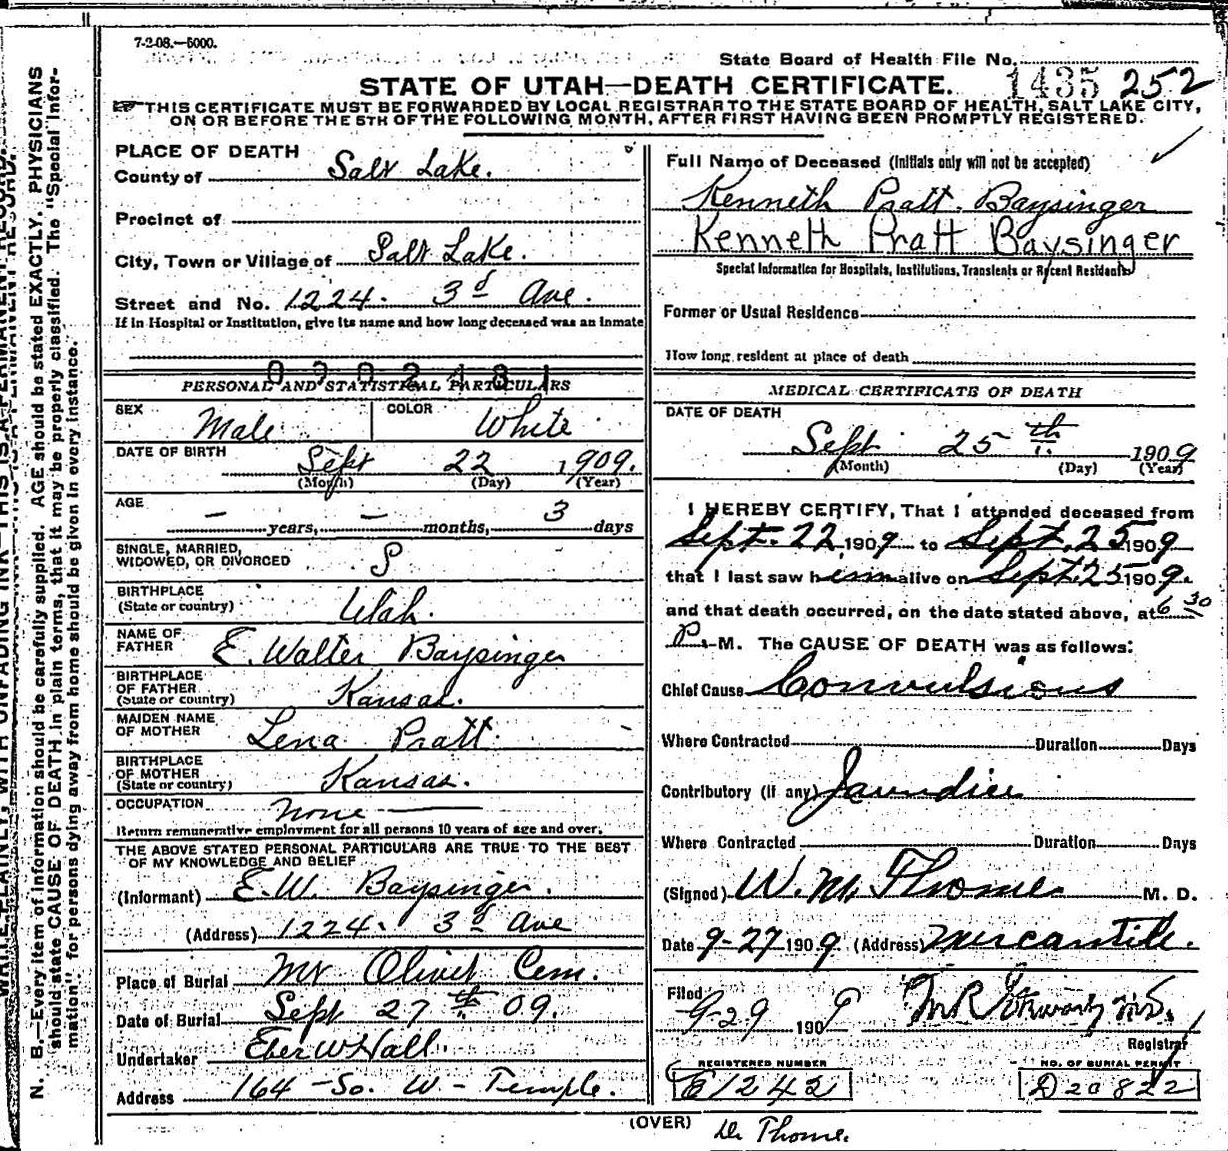 7-2-08.—5000.
State Board of Health File No. 1435 252
STATE OF UTAH—DEATH CERTIFICATE.
THIS CERTIFICATE MUST BE FORWARDED BY LOCAL REGISTRAR TO THE STATE BOARD OF HEALTH, SALT LAKE CITY,
ON OR BEFORE THE 5TH OF THE FOLLOWING MONTH, AFTER FIRST HAVING BEEN PROMPTLY REGISTERED.
PLACE OF DEATH
County of Salt Lake.
Precinct of
City, Town or Village of Salt Lake.
Street and No. 1224. 3d Ave.
If in Hospital or Institution, give its name and how long deceased was an inmate
PERSONAL AND STATISTICAL PARTICULARS
SEX Male COLOR White
DATE OF BIRTH Sept 22 1909.
(Month) (Day) (Year)
AGE — years, — months, 3 days
SINGLE, MARRIED,
WIDOWED, OR DIVORCED S
BIRTHPLACE
(State or country) Utah.
NAME OF
FATHER E. Walter Baysinger
BIRTHPLACE
OF FATHER
(State or country) Kansas.
MAIDEN NAME
OF MOTHER Lena Pratt.
BIRTHPLACE
OF MOTHER
(State or country) Kansas.
OCCUPATION None
Return remunerative employment for all persons 10 years of age and over.
THE ABOVE STATED PERSONAL PARTICULARS ARE TRUE TO THE BEST
OF MY KNOWLEDGE AND BELIEF
(Informant) E. W. Baysinger.
(Address) 1224. 3d Ave
Place of Burial Mt Olivet Cem.
Date of Burial Sept 27th 09.
Undertaker Eber W Hall.
Address 164 - So. W - Temple.
Full Name of Deceased (Initials only will not be accepted)
Kenneth Pratt. Baysinger
Kenneth Pratt Baysinger
Special Information for Hospitals, Institutions, Transients or Recent Residents
Former or Usual Residence
How long resident at place of death
MEDICAL CERTIFICATE OF DEATH
DATE OF DEATH
Sept 25th 1909
(Month) (Day) (Year)
I HEREBY CERTIFY, That I attended deceased from
Sept. 22, 1909 to Sept. 25 1909
that I last saw him alive on Sept. 25 1909.
and that death occurred, on the date stated above, at 6 30
P.-M. The CAUSE OF DEATH was as follows:
Chief Cause Convulsions
Where Contracted Duration Days
Contributory (if any) Jaundice
Where Contracted Duration Days
(Signed) W. M. Thome M. D.
Date 9-27 1909 (Address) Mercantile.
Filed
9-29 1909
Registrar
REGISTERED NUMBER NO. OF BURIAL PERMIT
E1242 D20822
(OVER)
Dr. Thome.
N. B.—Every item of information should be carefully supplied. AGE should be stated EXACTLY. PHYSICIANS
should state CAUSE OF DEATH in plain terms, that it may be properly classified. The "Special Infor-
mation" for persons dying away from home should be given in every instance.
WRITE PLAINLY, WITH UNFADING INK—THIS IS A PERMANENT RECORD.